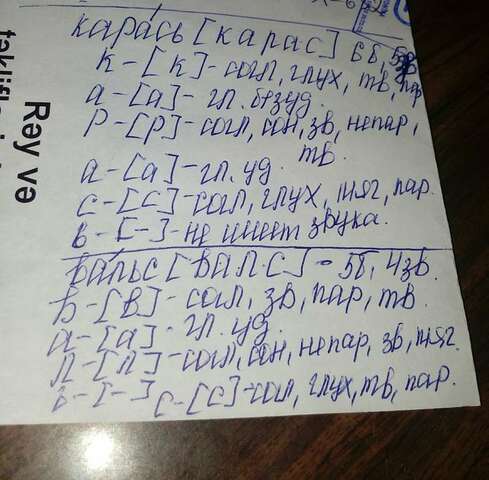 карась [карас] 6б, 5зв
к-[к]-согл, глух, тв, пар
а-[а]-гл. безуд.
р-[р]-согл, сон, зв, непар,
тв.
а-[а]-гл. уд.
с-[с]-согл, глух, мяг, пар.
ь-[-]-не имеет звука.
вальс [вал.с]-5б, 4зв.
в-[в]-согл, зв, пар, тв.
а-[а]-гл. уд.
л-[л]-согл, сон, непар, зв, мяг.
ь-[-] с-[с]-согл, глух, тв, пар.
Rəy və